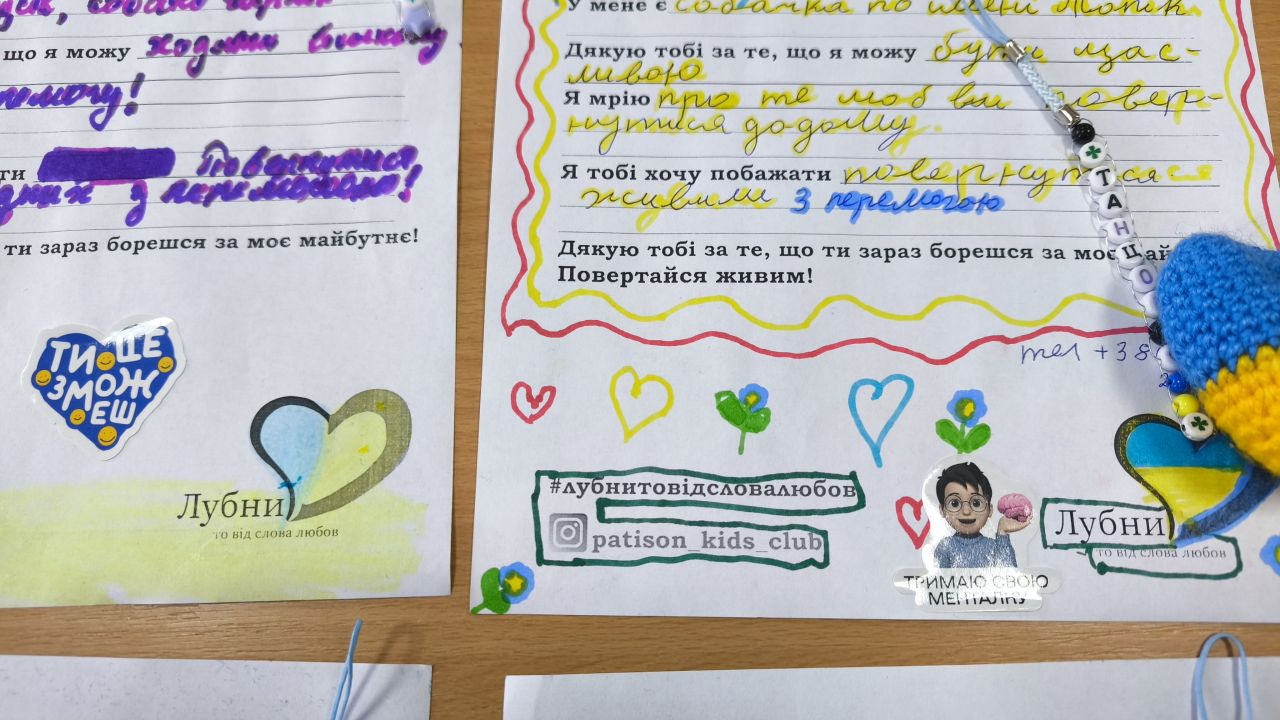 що я можу ходити в школу
ти Повернутися
з перемогою!
ти зараз борешся за моє майбутнє!
ТИ ЦЕ
ЗМОЖ
ЕШ
Лубни
то від слова любов
У мене є собачка по імені
Дякую тобі за те, що я можу бути щас-
ливою
Я мрію про те щоб ви повер-
нутися додому.
Я тобі хочу побажати повернутися
живими з перемогою
Дякую тобі за те, що ти зараз борешся за моє
Повертайся живим!
ТАНЦЮ
тел +38
#лубнитовідсловалюбов
patison_kids_club
ТРИМАЮ СВОЮ
МЕНТАЛКУ
Лубни
то від слова любов